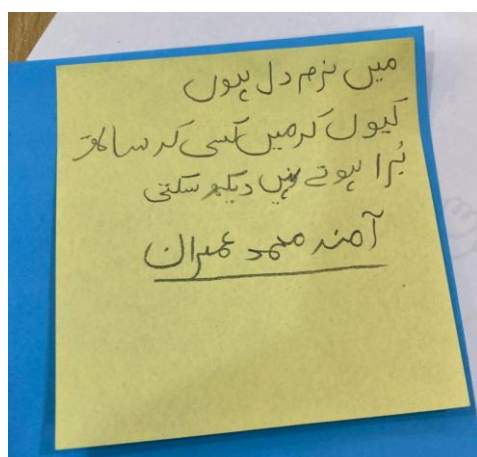 میں نرم دل ہوں
کیوں کہ میں کسی کہ ساتھ
بُرا ہوتے نہیں دیکھ سکتی
آمنہ محمد عمران